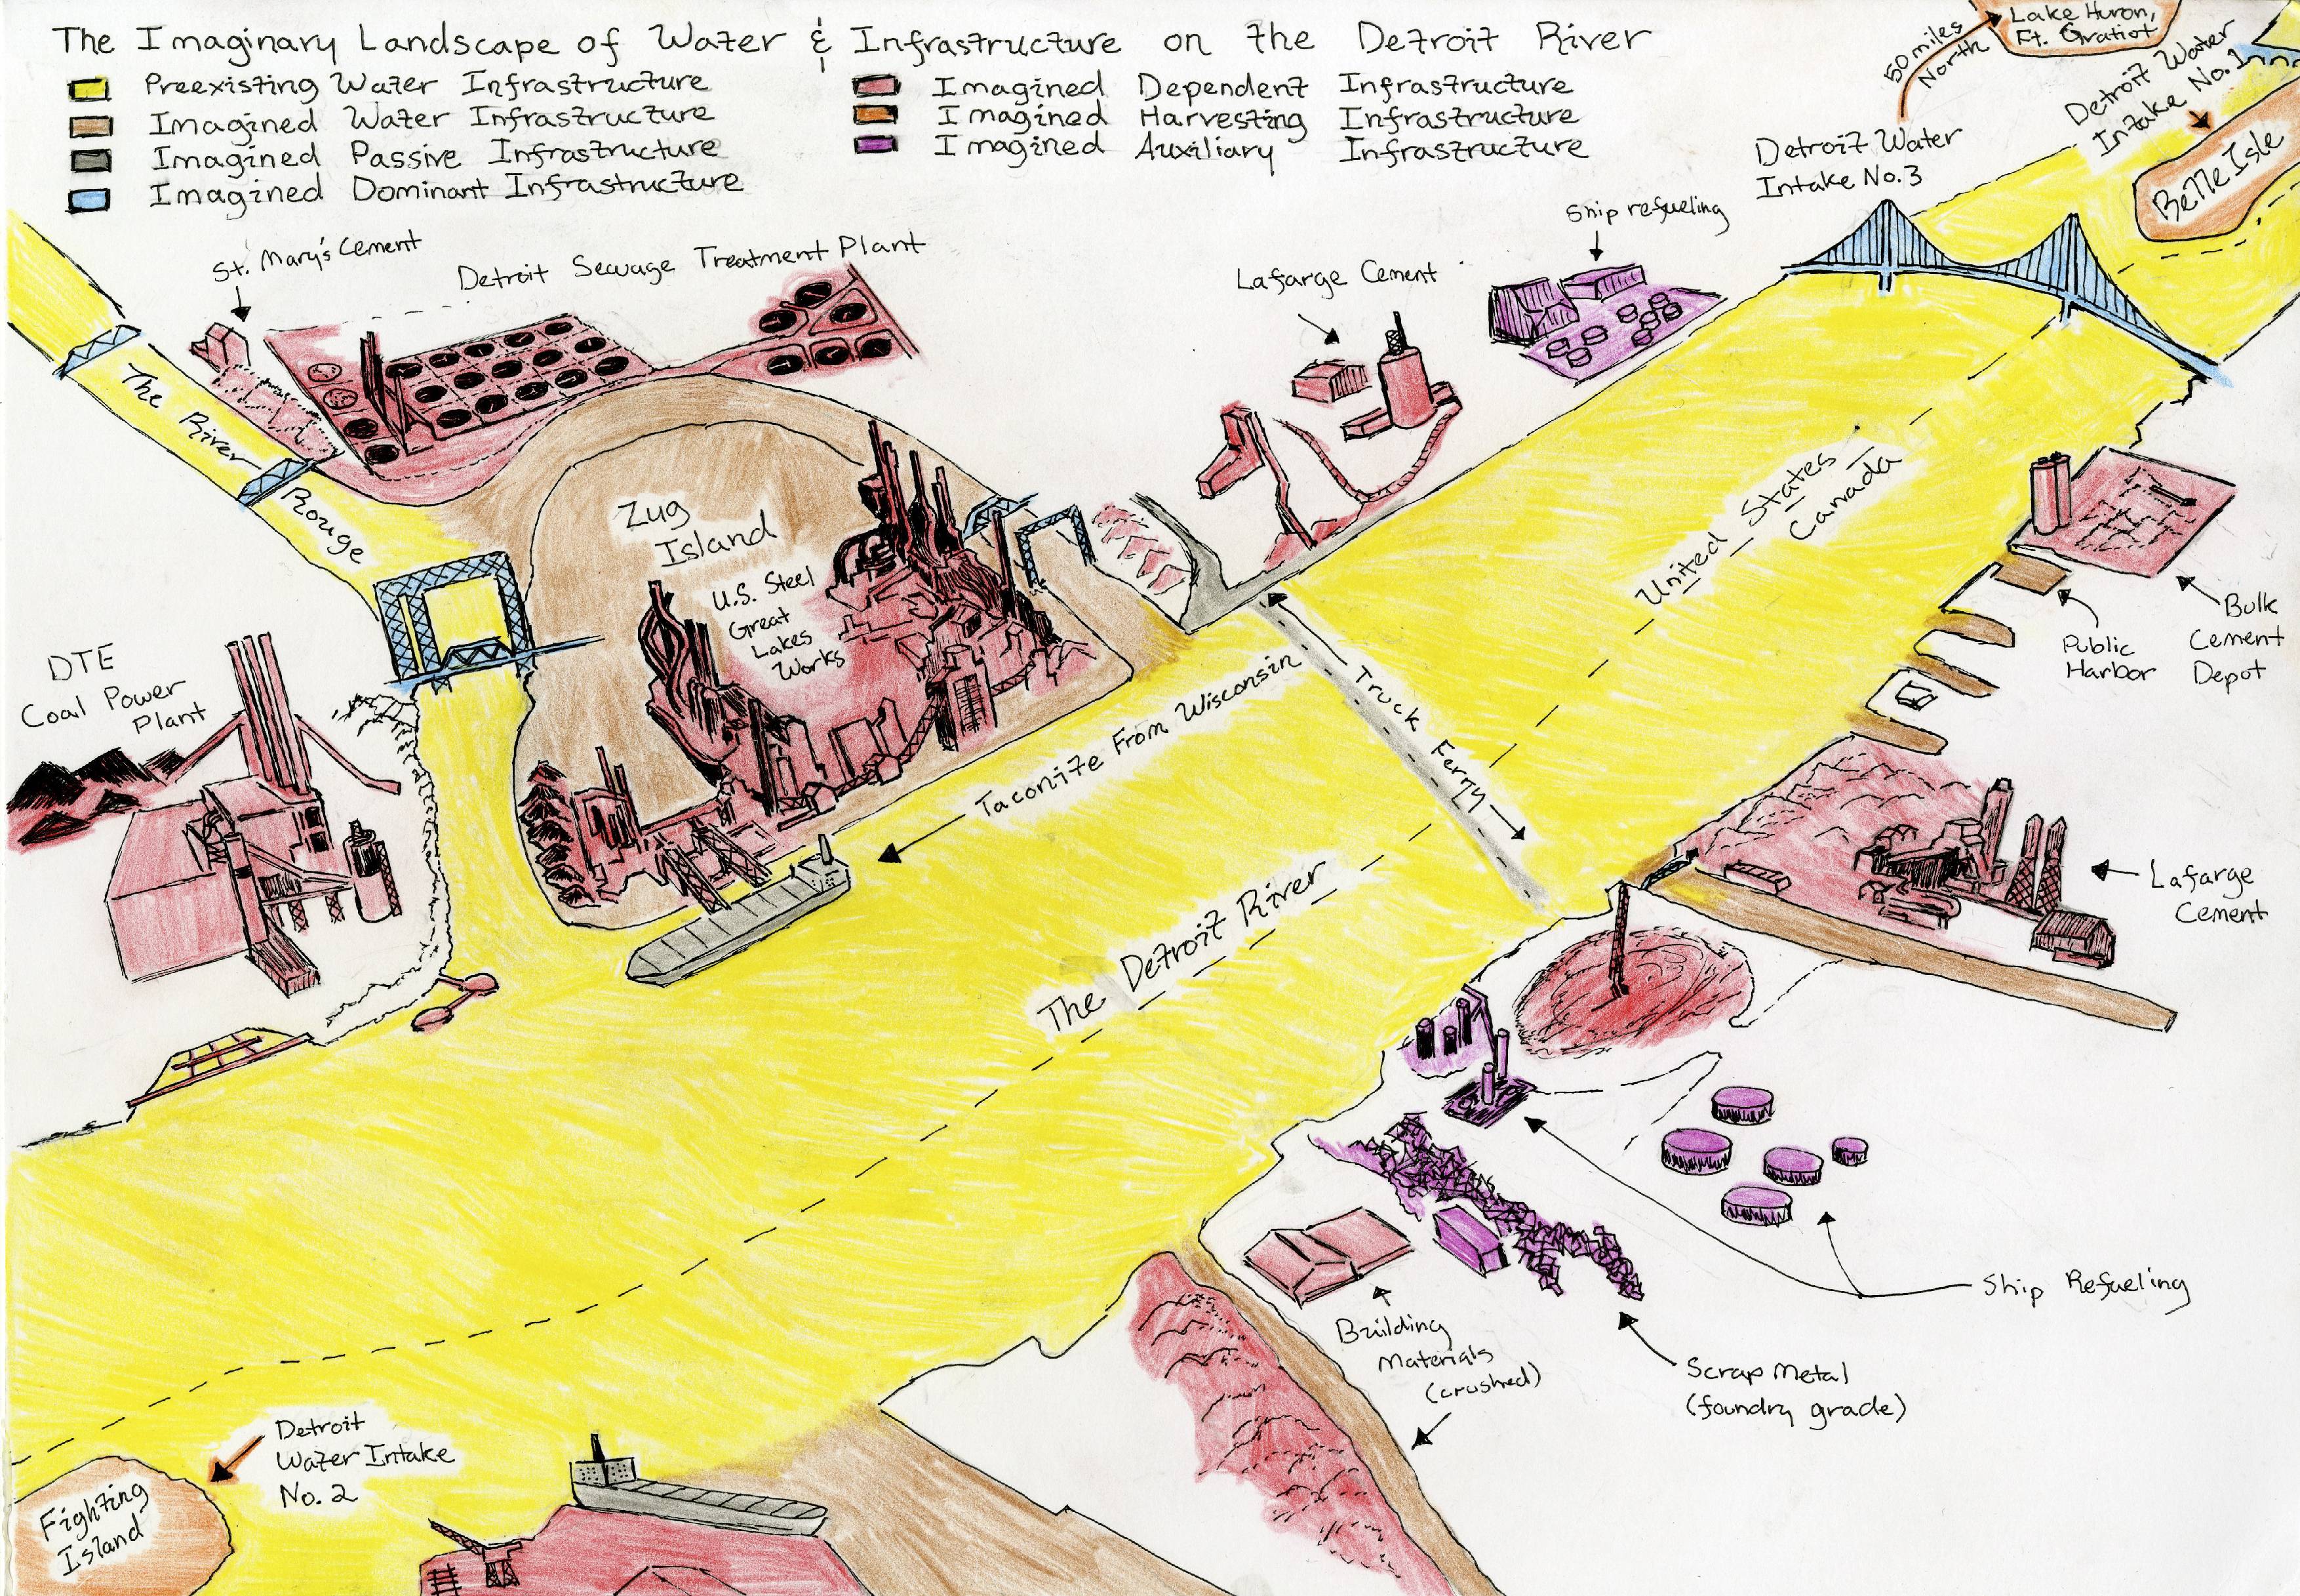 The Imaginary Landscape of Water & Infrastructure on the Detroit River
Preexisting Water Infrastructure
Imagined Water Infrastructure
Imagined Passive Infrastructure
Imagined Dominant Infrastructure
Imagined Dependent Infrastructure
Imagined Harvesting Infrastructure
Imagined Auxiliary Infrastructure
50 miles
North
Lake Huron,
Ft. Gratiot
Detroit Water
Intake No.1
Belle Isle
Detroit Water
Intake No.3
Ship refueling
Lafarge Cement
St. Mary's Cement
Detroit Sewage Treatment Plant
The River
Rouge
Zug
Island
U.S. Steel
Great
Lakes
Works
DTE
Coal Power
Plant
United States
Canada
Bulk
Cement
Depot
Public
Harbor
Taconite From Wisconsin
Truck Ferry
The Detroit River
Lafarge
Cement
Ship Refueling
Building
Materials
(crushed)
Scrap Metal
(foundry grade)
Detroit
Water Intake
No. 2
Fighting
Island